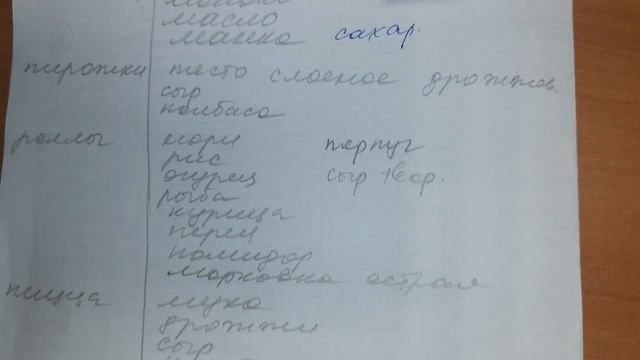 масло
манка сахар.
пирожки тесто слоеное дрожжев.
сыр
колбаса
роллы нори терпуг
рис
огурец сыр твор.
рыба
курица
перец
помидор
морковка острая
пицца мука
дрожжи
сыр